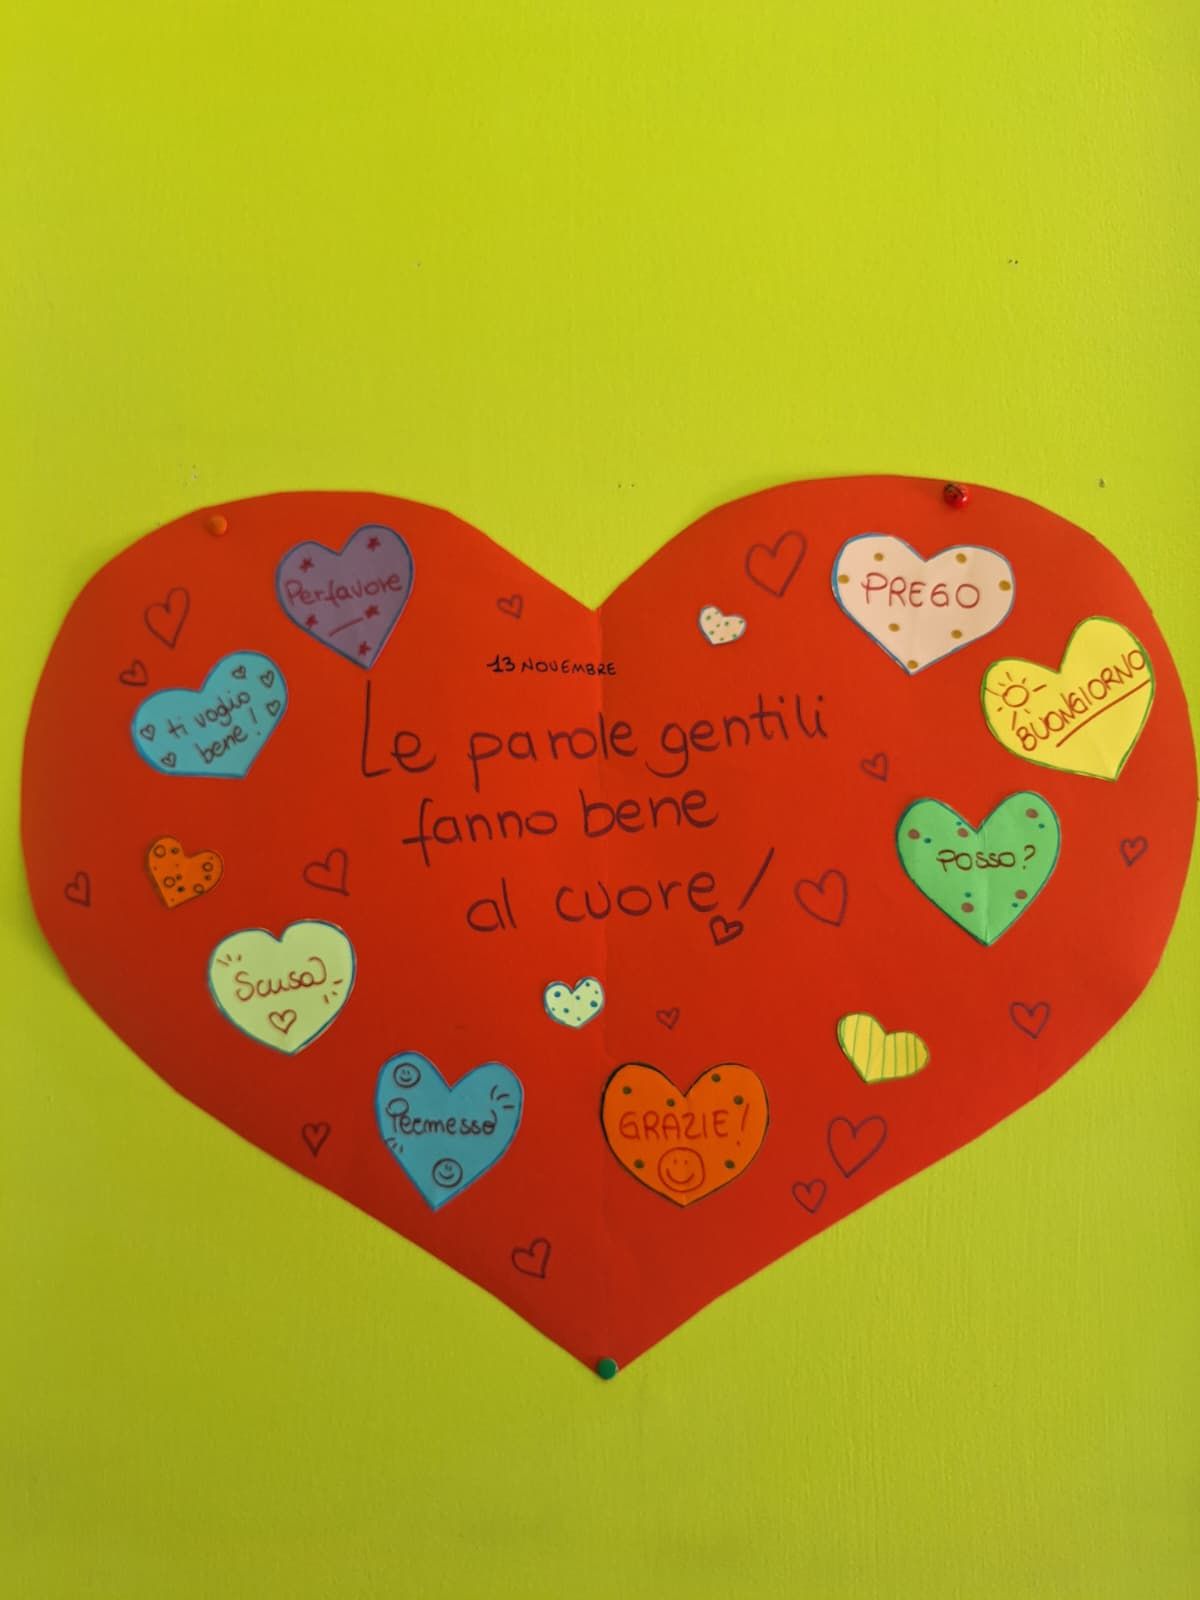 Per favore
PREGO
13 NOVEMBRE
ti voglio
bene!
BUONGIORNO
Le parole gentili
fanno bene
al cuore!
POSSO?
Scusa
Permesso
GRAZIE!